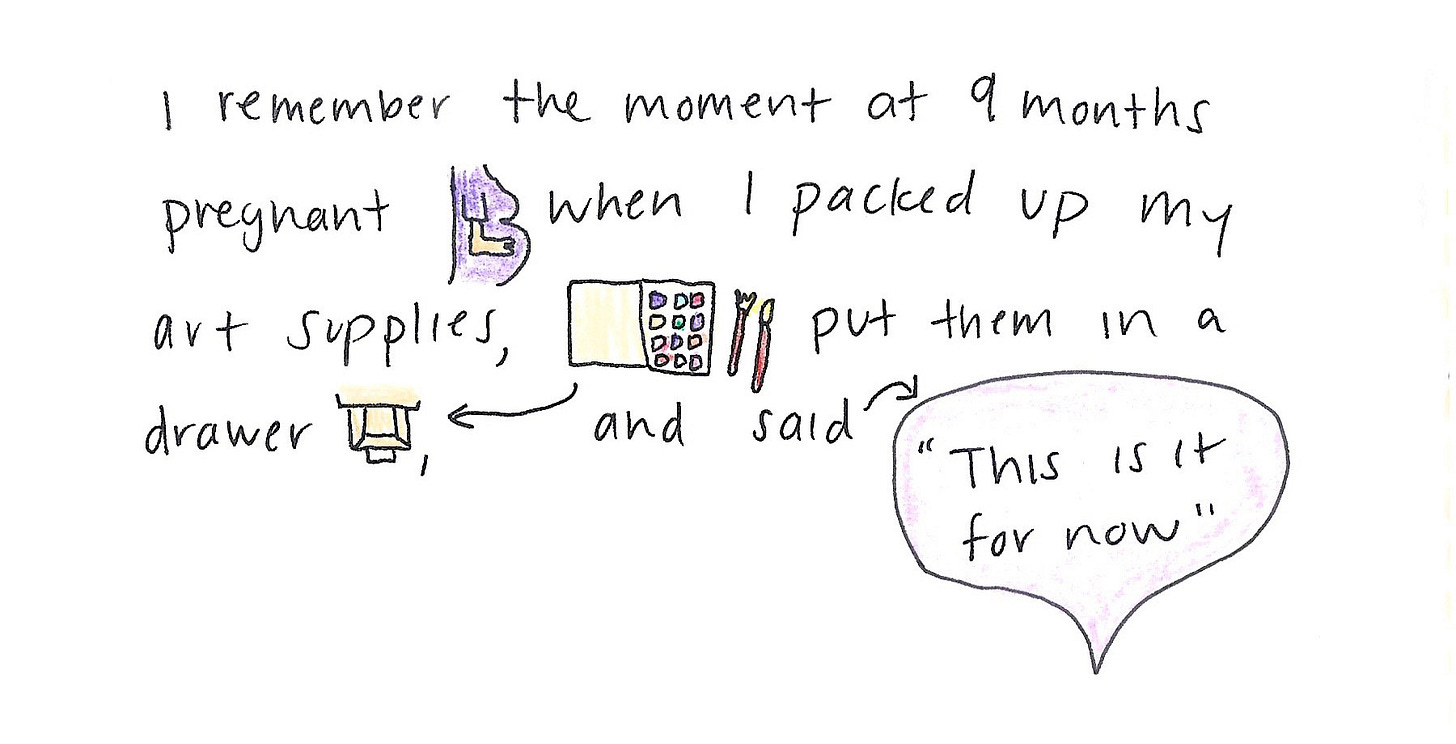 I remember the moment at 9 months
pregnant when I packed up my
art supplies, put them in a
drawer, and said
"This is it
for now"